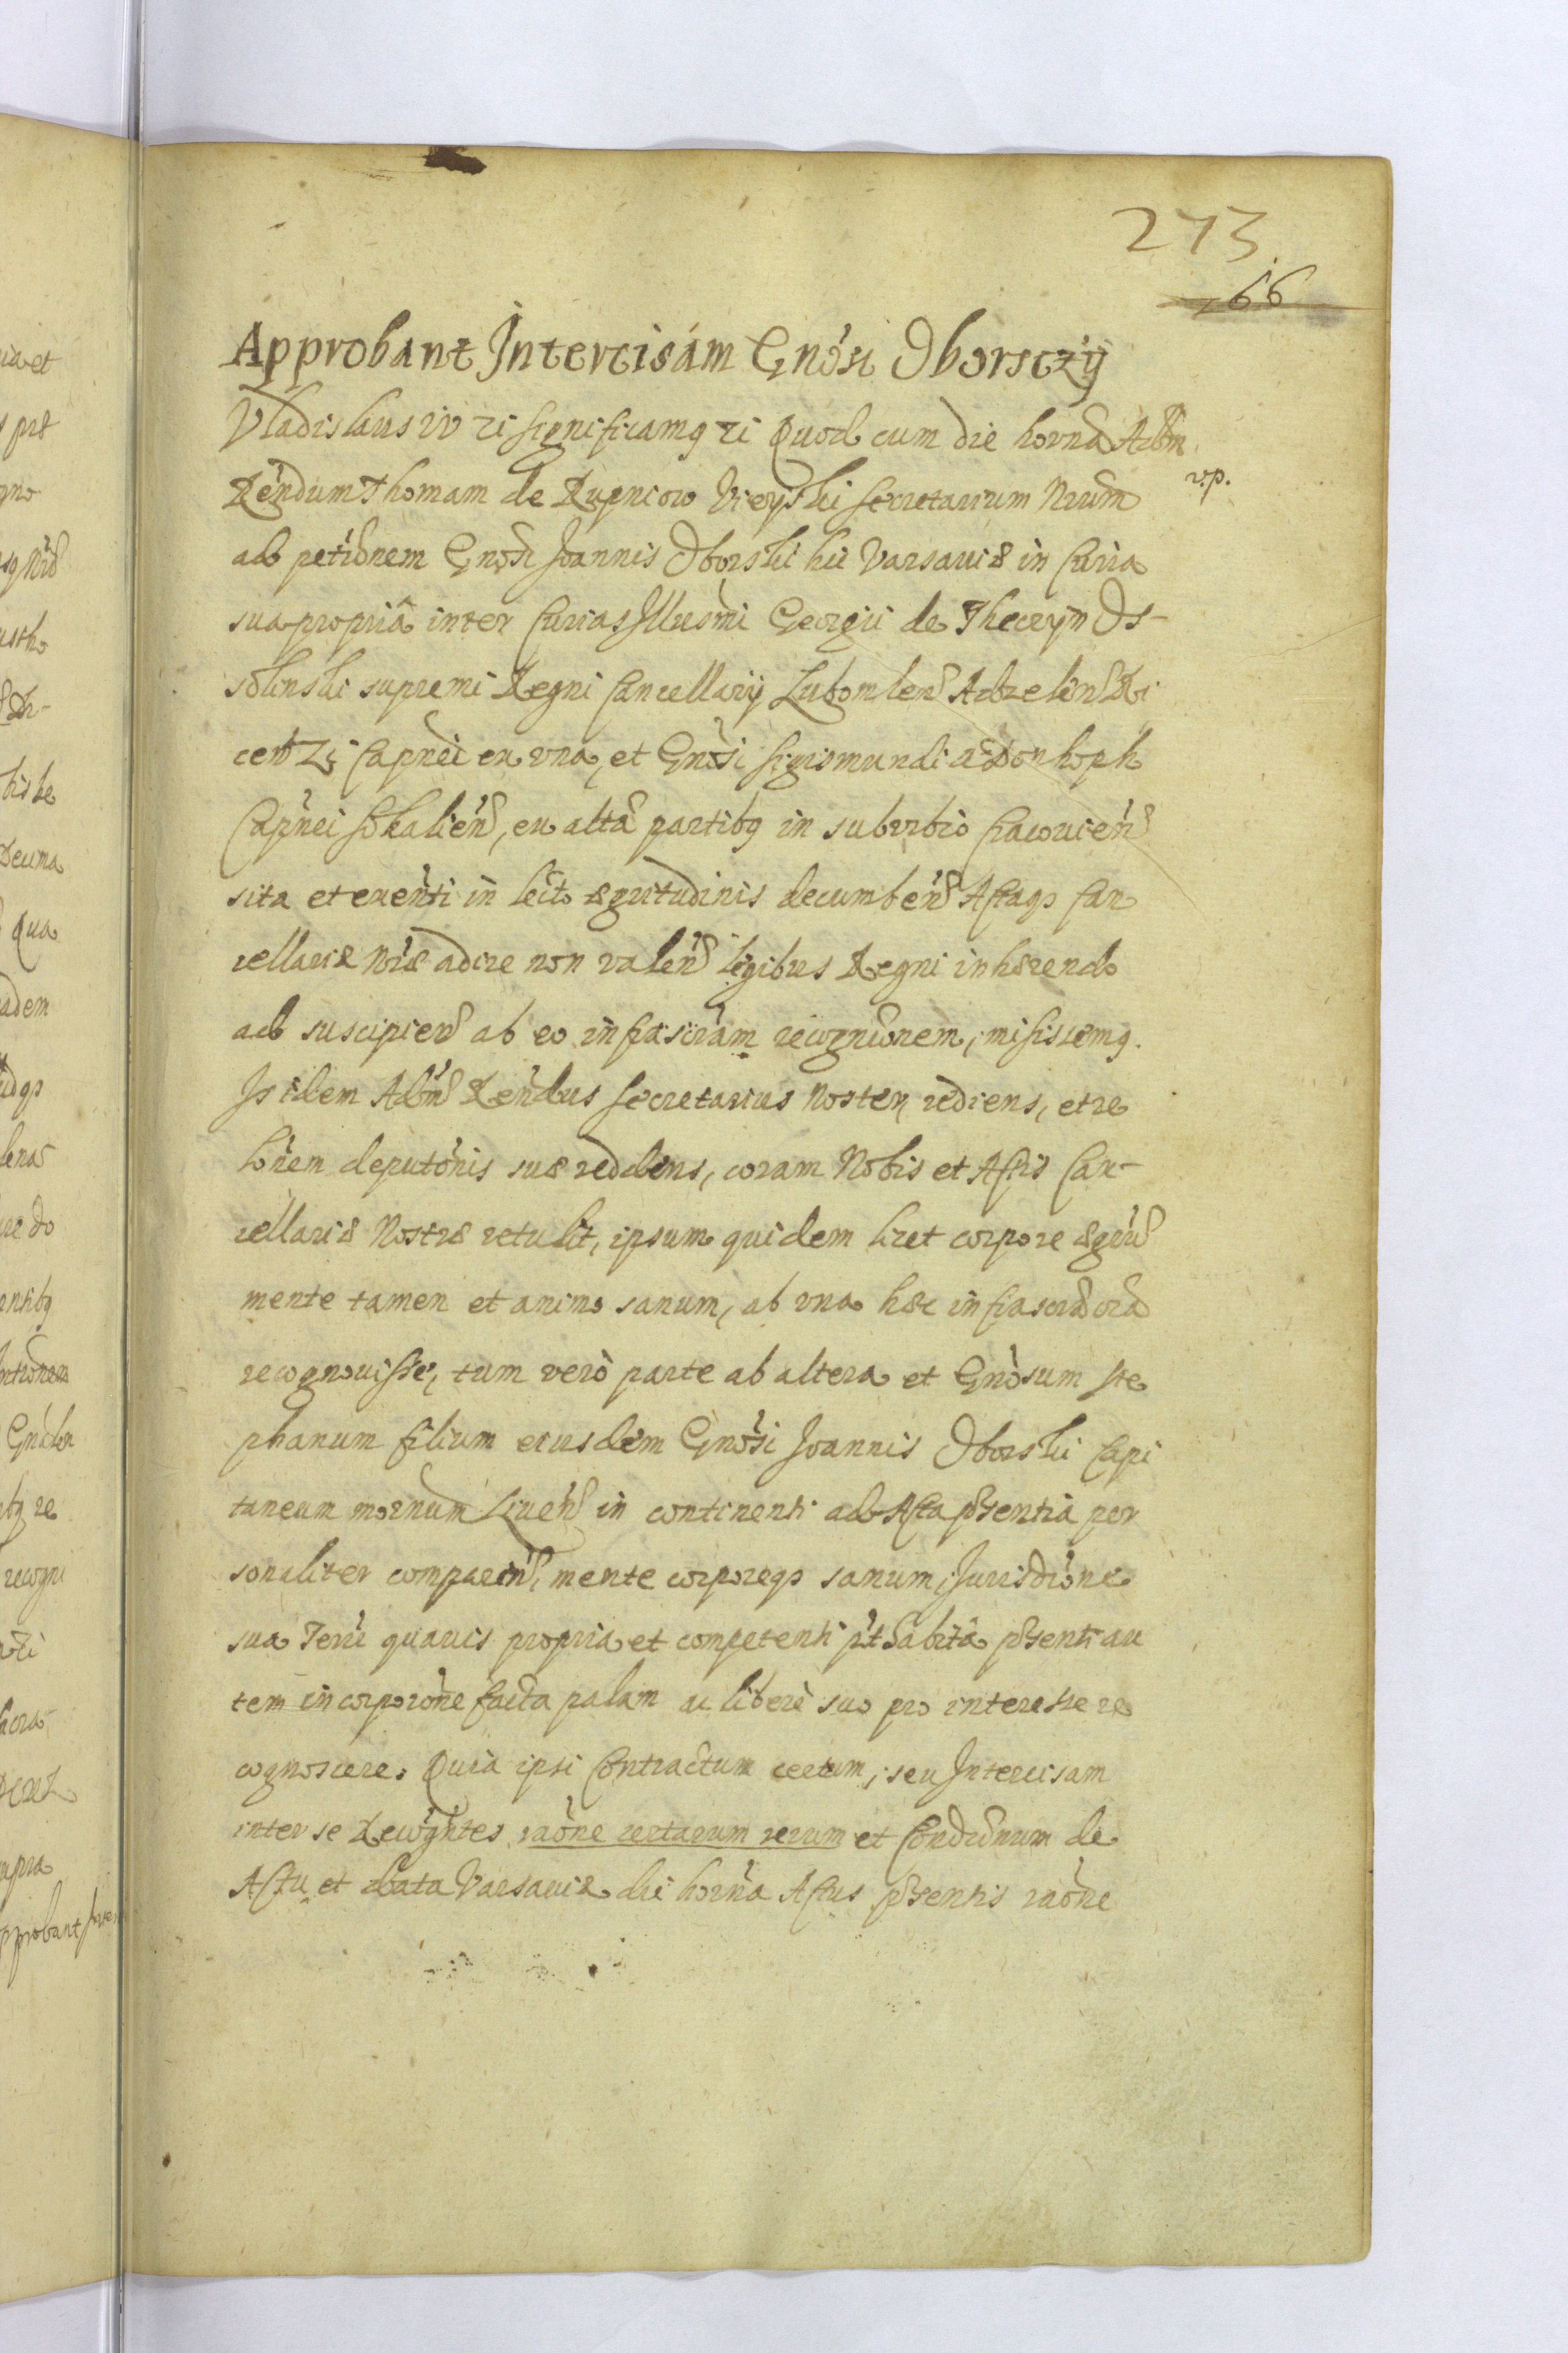 273
66
Approbant Intercisam Gnosi Oborsczÿ
Vladislaus IV ei significamq ei Quod cum die horna Adm
v.p.
Rendum Thomam de Rupniow Vieyski Secretarium Nrum
ad petitionem Gnosi Joannis Oborski hic Varsauiæ in Curia
sua propriâ inter Curias Illusmi Georgii de Theczyn Os-
solinski supremi Regni Cancellarÿ Lubomlen Adzelen
cen Capnei ex una, et Gnosi Sigismundi a Donhoph
Capnei Sokalien, ex alta partibq in suburbio Cracouien
sita et exenti in lecto ægritudinis decumben Actaqs Can
cellariæ Nræ adire non valen legibus Regni inhærendo
ad suscipien ab eo infrascram recognionem, misissemq.
Is idem Adm Rendus Secretarius Noster, rediens, et re
lonem deputonis suæ reddens, coram Nobis et Actis Can-
cellariæ Nostræ retulit, ipsum quidem licet corpore ægrũ
mente tamen et animo sanum, ab una hæc infrascra ora
recognouisse, tum verò parte ab altera et Gnosum Ste
phanum filium eiusdem Gnosi Joannis Oborski Capi
taneum mornum Liuen in continenti ad Acta psentia per
sonaliter comparen, mente corporeqs sanum, Jurisdione
sua Terri quauis propria et competenti pt habita psenti au
tem incorporone facta palam ac liberè suo pro interesse re
cognoscere. Quia ipsi Contractum certum, seu Intercisam
inter se Recogntes raone certarum rerum et Condionum de
Actu et data Varsauiæ die horna Actus psentis raone